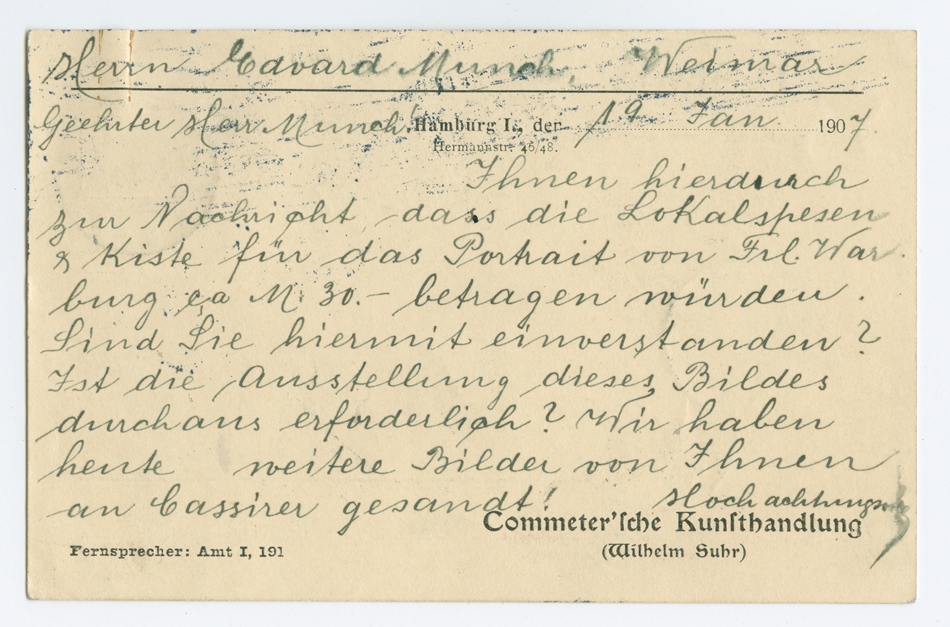 Herrn Edvard Munch, Weimar
Geehrter Herr Munch! Hamburg I., den 19. Jan 1907
Hermannstr. 46/48.
Ihnen hierdurch
zur Nachricht, dass die Lokalspesen
& Kiste für das Portrait von Frl. War-
burg ca M. 30.- betragen würden.
Sind Sie hiermit einverstanden?
Ist die Ausstellung dieses Bildes
durchaus erforderlich? Wir haben
heute weitere Bilder von Ihnen
an Cassirer gesandt!
Hochachtungsvoll
Commeter'ſche Kunſthandlung
Fernsprecher: Amt I, 191 (Wilhelm Suhr)